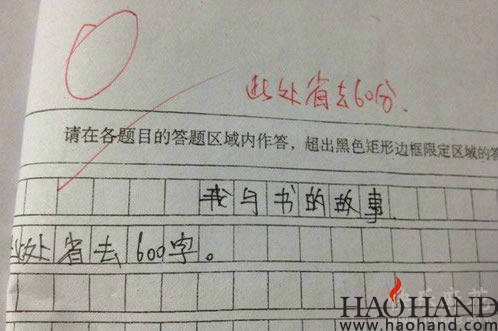 此处省去60分.
请在各题目的答题区域内作答，超出黑色矩形边框限定区域的答
我与书的故事
此处省去600字。
HAOHAND
www.haohand.com